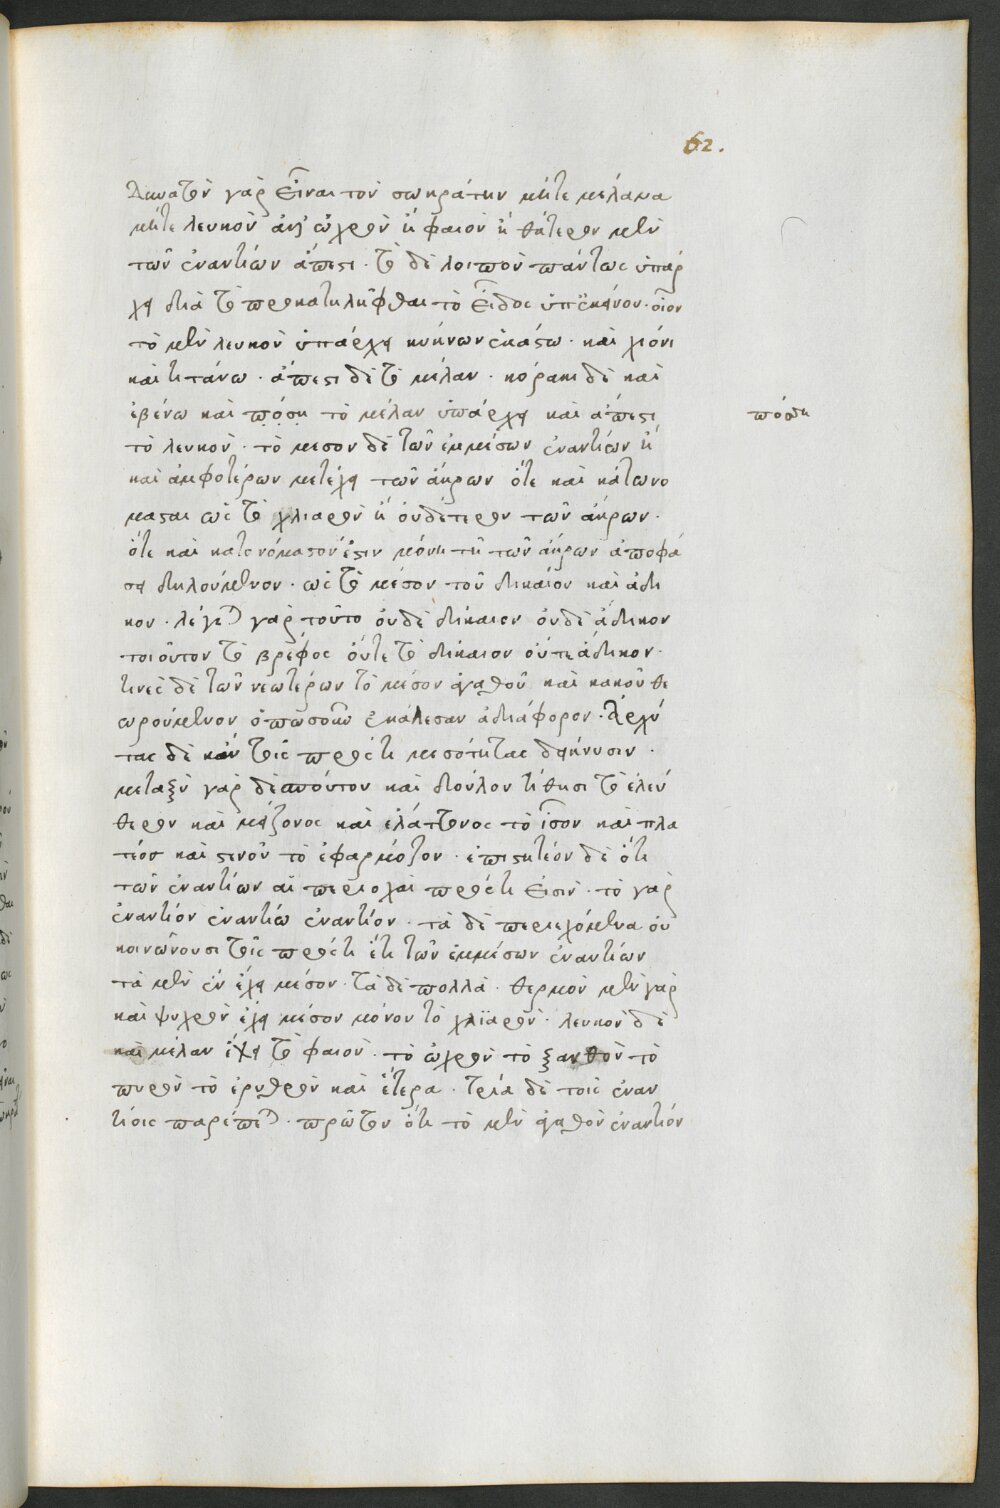 62.
Δυνατὸν γὰρ εἶναι τὸν σωκράτην μήτε μέλανα
μήτε λευκὸν ἀλλ' ὠχρὸν ἢ φαιὸν ἢ θάτερον μὲν
τῶν ἐναντίων ἄπεστι · τὸ δὲ λοιπὸν πάντως ὑπάρ
χει διὰ τὸ προκατηλῆφθαι τὸ εἶδος ὑπ' ἐκείνου · οἷον
τὸ μὲν λευκὸν ὑπάρχει κύκνων ἑκάστω · καὶ χιόνι
καὶ τιτάνω · ἄπεστι δὲ τὸ μέλαν · κόρακι δὲ καὶ
ἐβένω καὶ πόση τὸ μέλαν ὑπάρχει καὶ ἄπεστι
πόση
τὸ λευκὸν · τὸ μεσον δὲ τῶν ἐμμέσων ἐναντίων ἢ
καὶ ἀμφοτέρων μετέχει τῶν ἄκρων ὅτε καὶ κάτωνο
μασται ὡς τὸ χλιαρὸν ἢ οὐδέτερον τῶν ἄκρων ·
ὅτε καὶ κατονόμαστόν ἐστιν μόνη τῆ τῶν ἄκρων ἀποφά
σει δηλούμενον · ὡς τὸ μέσον τοῦ δικαίου καὶ ἀδί
κου · λέγεται γὰρ τοῦτο οὐδὲ δίκαιον οὐδὲ ἄδικον
τοιοῦτον τὸ βρέφος οὔτε τὸ δίκαιον οὔτε ἄδικον ·
τινὲς δὲ τῶν νεωτέρων τὸ μέσον ἀγαθοῦ καὶ κακοῦ θε
ωρούμενον ὁπωσοῦν ἐκάλεσαν ἀδιάφορον · Ἀρχύ
τας δὲ κἀν τοῖς πρός τι μεσότητας δείκνυσιν ·
μεταξὺ γὰρ δεσπόντου καὶ δούλου τίθησι τὸ ἐλεύ
θερον καὶ μείζονος καὶ ἐλάττονος τὸ ἶσον καὶ πλα
τέος καὶ στενοῦ τὸ ἐφαρμόζον · ἐπιστητέον δὲ ὅτι
τῶν ἐναντίων αἱ περιοχαὶ πρός τι εἰσὶν · τὸ γὰρ
ἐναντίον ἐναντίω ἐναντίον · τὰ δὲ περιεχόμενα οὐ
κοινωνοῦσι τοῖς πρός τι ἔτι τῶν ἐμμέσων ἐναντίων
τὰ μὲν ἓν ἔχει μέσον · τὰ δὲ πολλά · θερμὸν μὲν γὰρ
καὶ ψυχρὸν ἔχει μέσον μόνον τὸ χλϊαρὸν · λευκὸν δὲ
καὶ μέλαν ἔχει τὸ φαιὸν · τὸ ὠχρὸν τὸ ξανθὸν τὸ
πυρὸν τὸ ἐρυθρὸν καὶ ἕτερα · τρία δὲ τοις ἐναν
τίοις παρέπεται · πρῶτον ὅτι τὸ μὲν ἀγαθὸν ἐναντίον